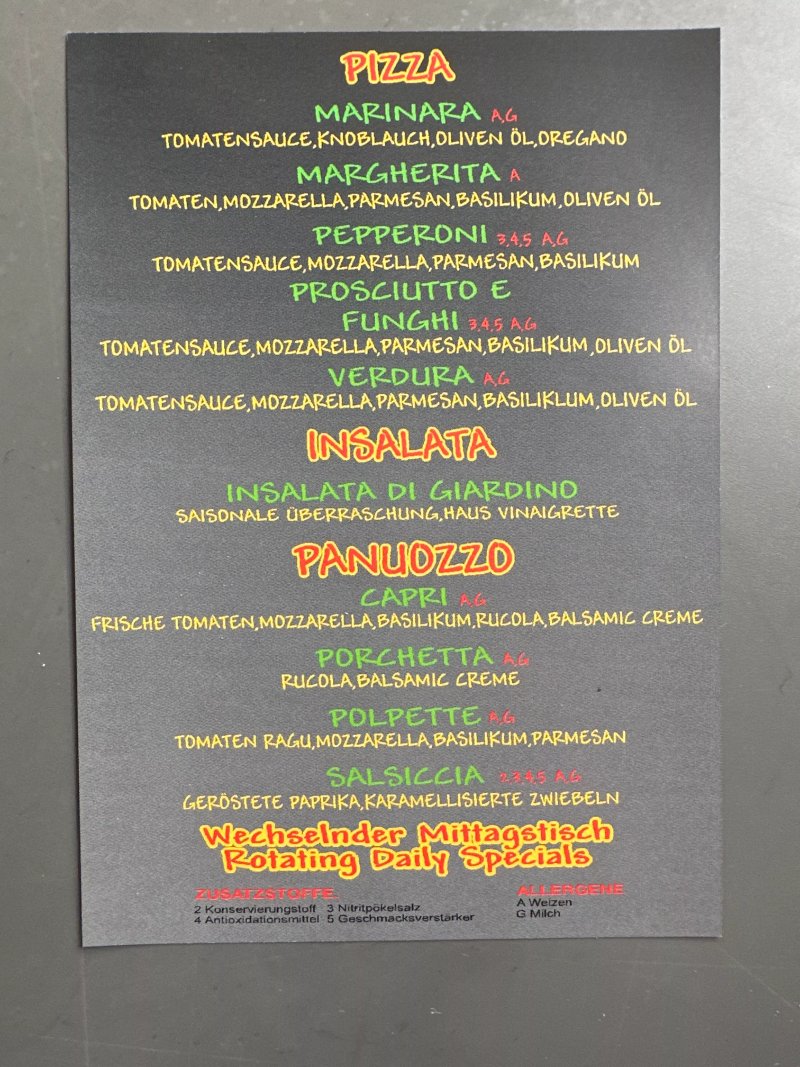 PIZZA
MARINARA A,G
TOMATENSAUCE,KNOBLAUCH,OLIVEN ÖL,OREGANO
MARGHERITA A
TOMATEN,MOZZARELLA,PARMESAN,BASILIKUM,OLIVEN ÖL
PEPPERONI 3,4,5 A,G
TOMATENSAUCE,MOZZARELLA,PARMESAN,BASILIKUM
PROSCIUTTO E
FUNGHI 3,4,5 A,G
TOMATENSAUCE,MOZZARELLA,PARMESAN,BASILIKUM,OLIVEN ÖL
VERDURA A,G
TOMATENSAUCE,MOZZARELLA,PARMESAN,BASILIKLUM,OLIVEN ÖL
INSALATA
INSALATA DI GIARDINO
SAISONALE ÜBERRASCHUNG,HAUS VINAIGRETTE
PANUOZZO
CAPRI A,G
FRISCHE TOMATEN,MOZZARELLA,BASILIKUM,RUCOLA,BALSAMIC CREME
PORCHETTA A,G
RUCOLA,BALSAMIC CREME
POLPETTE A,G
TOMATEN RAGU,MOZZARELLA,BASILIKUM,PARMESAN
SALSICCIA 2,3,4,5 A,G
GERÖSTETE PAPRIKA,KARAMELLISIERTE ZWIEBELN
Wechselnder Mittagstisch
Rotating Daily Specials
ZUSATZSTOFFE:
2 Konservierungstoff 3 Nitritpökelsalz
4 Antioxidationsmittel 5 Geschmacksverstärker
ALLERGENE
A Weizen
G Milch